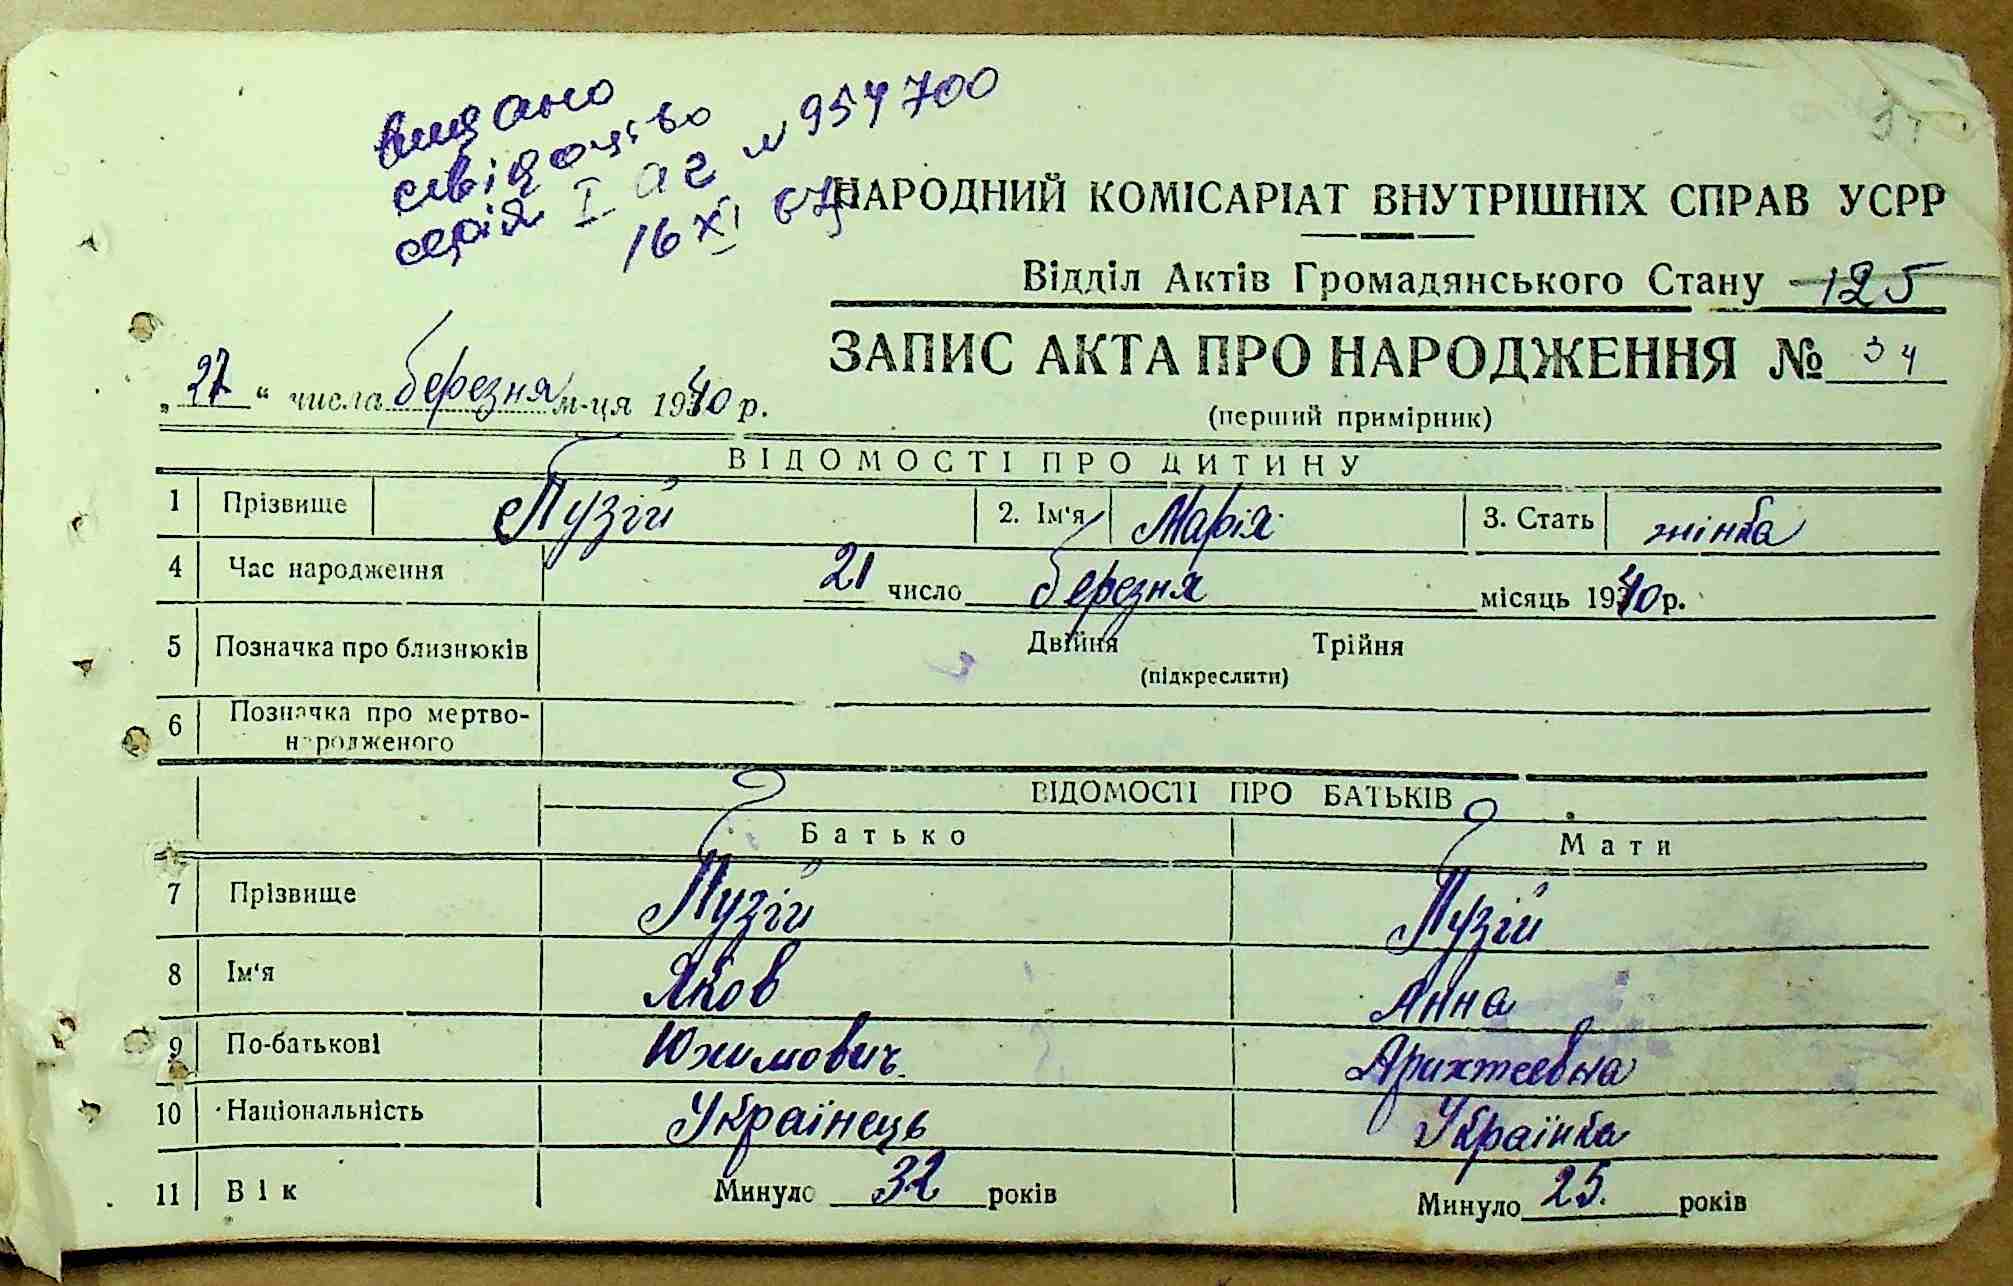 видано
свідоцтво
серія I аг № 954700
16 XI 67
НАРОДНИЙ КОМІСАРІАТ ВНУТРІШНІХ СПРАВ УСРР
Відділ Актів Громадянського Стану 125
ЗАПИС АКТА ПРО НАРОДЖЕННЯ № 34
„27“ числа березня м-ця 1940 р.
(перший примірник)
ВІДОМОСТІ ПРО ДИТИНУ
1 Прізвище Пузій 2. Ім'я Марія 3. Стать жінка
4 Час народження 21 число березня місяць 1940 р.
5 Позначка про близнюків Двійня Трійня
(підкреслити)
6 Позначка про мертво-
народженого
ВІДОМОСТІ ПРО БАТЬКІВ
Батько Мати
7 Прізвище Пузій Пузій
8 Ім'я Яков Анна
9 По-батькові Юхимович Арихтеевна
10 Національність Українець Українка
11 Вік Минуло 32 років Минуло 25 років